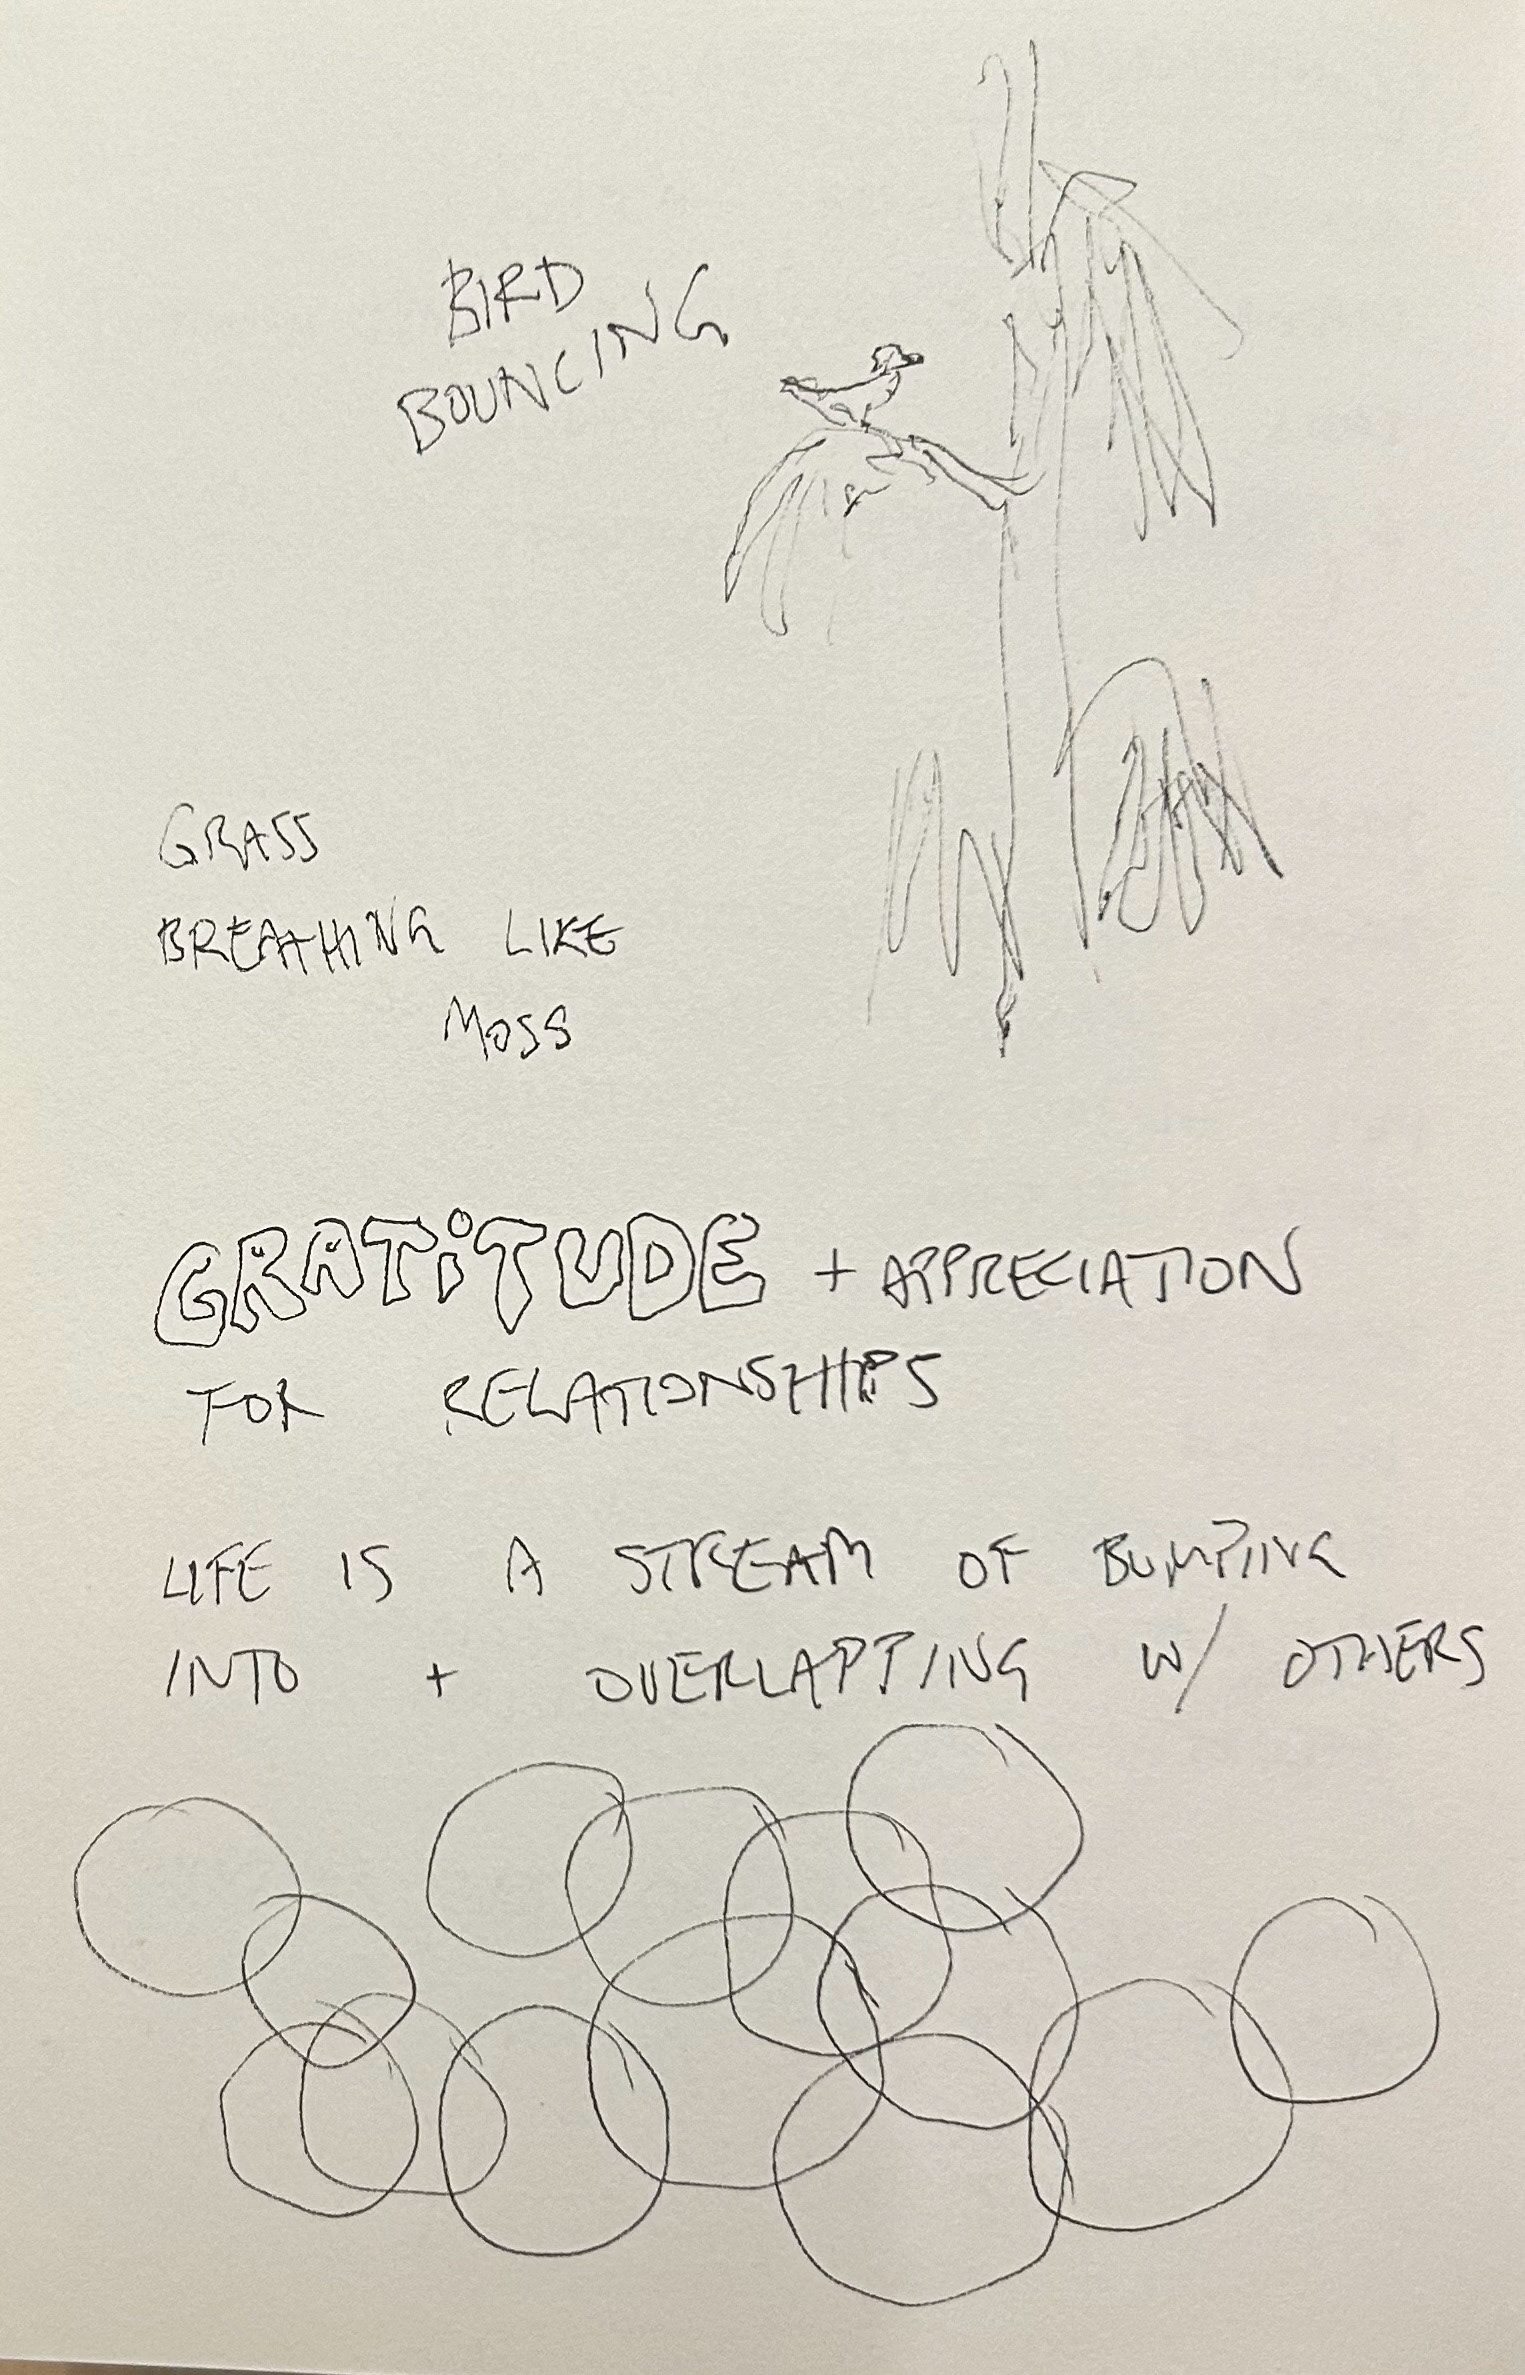 BIRD
BOUNCING
GRASS
BREATHING LIKE
MOSS
GRATiTUDE + APPRECIATION
FOR RELATIONSHIPS
LIFE IS A STREAM OF BUMPING
INTO + OVERLAPPING W/ OTHERS